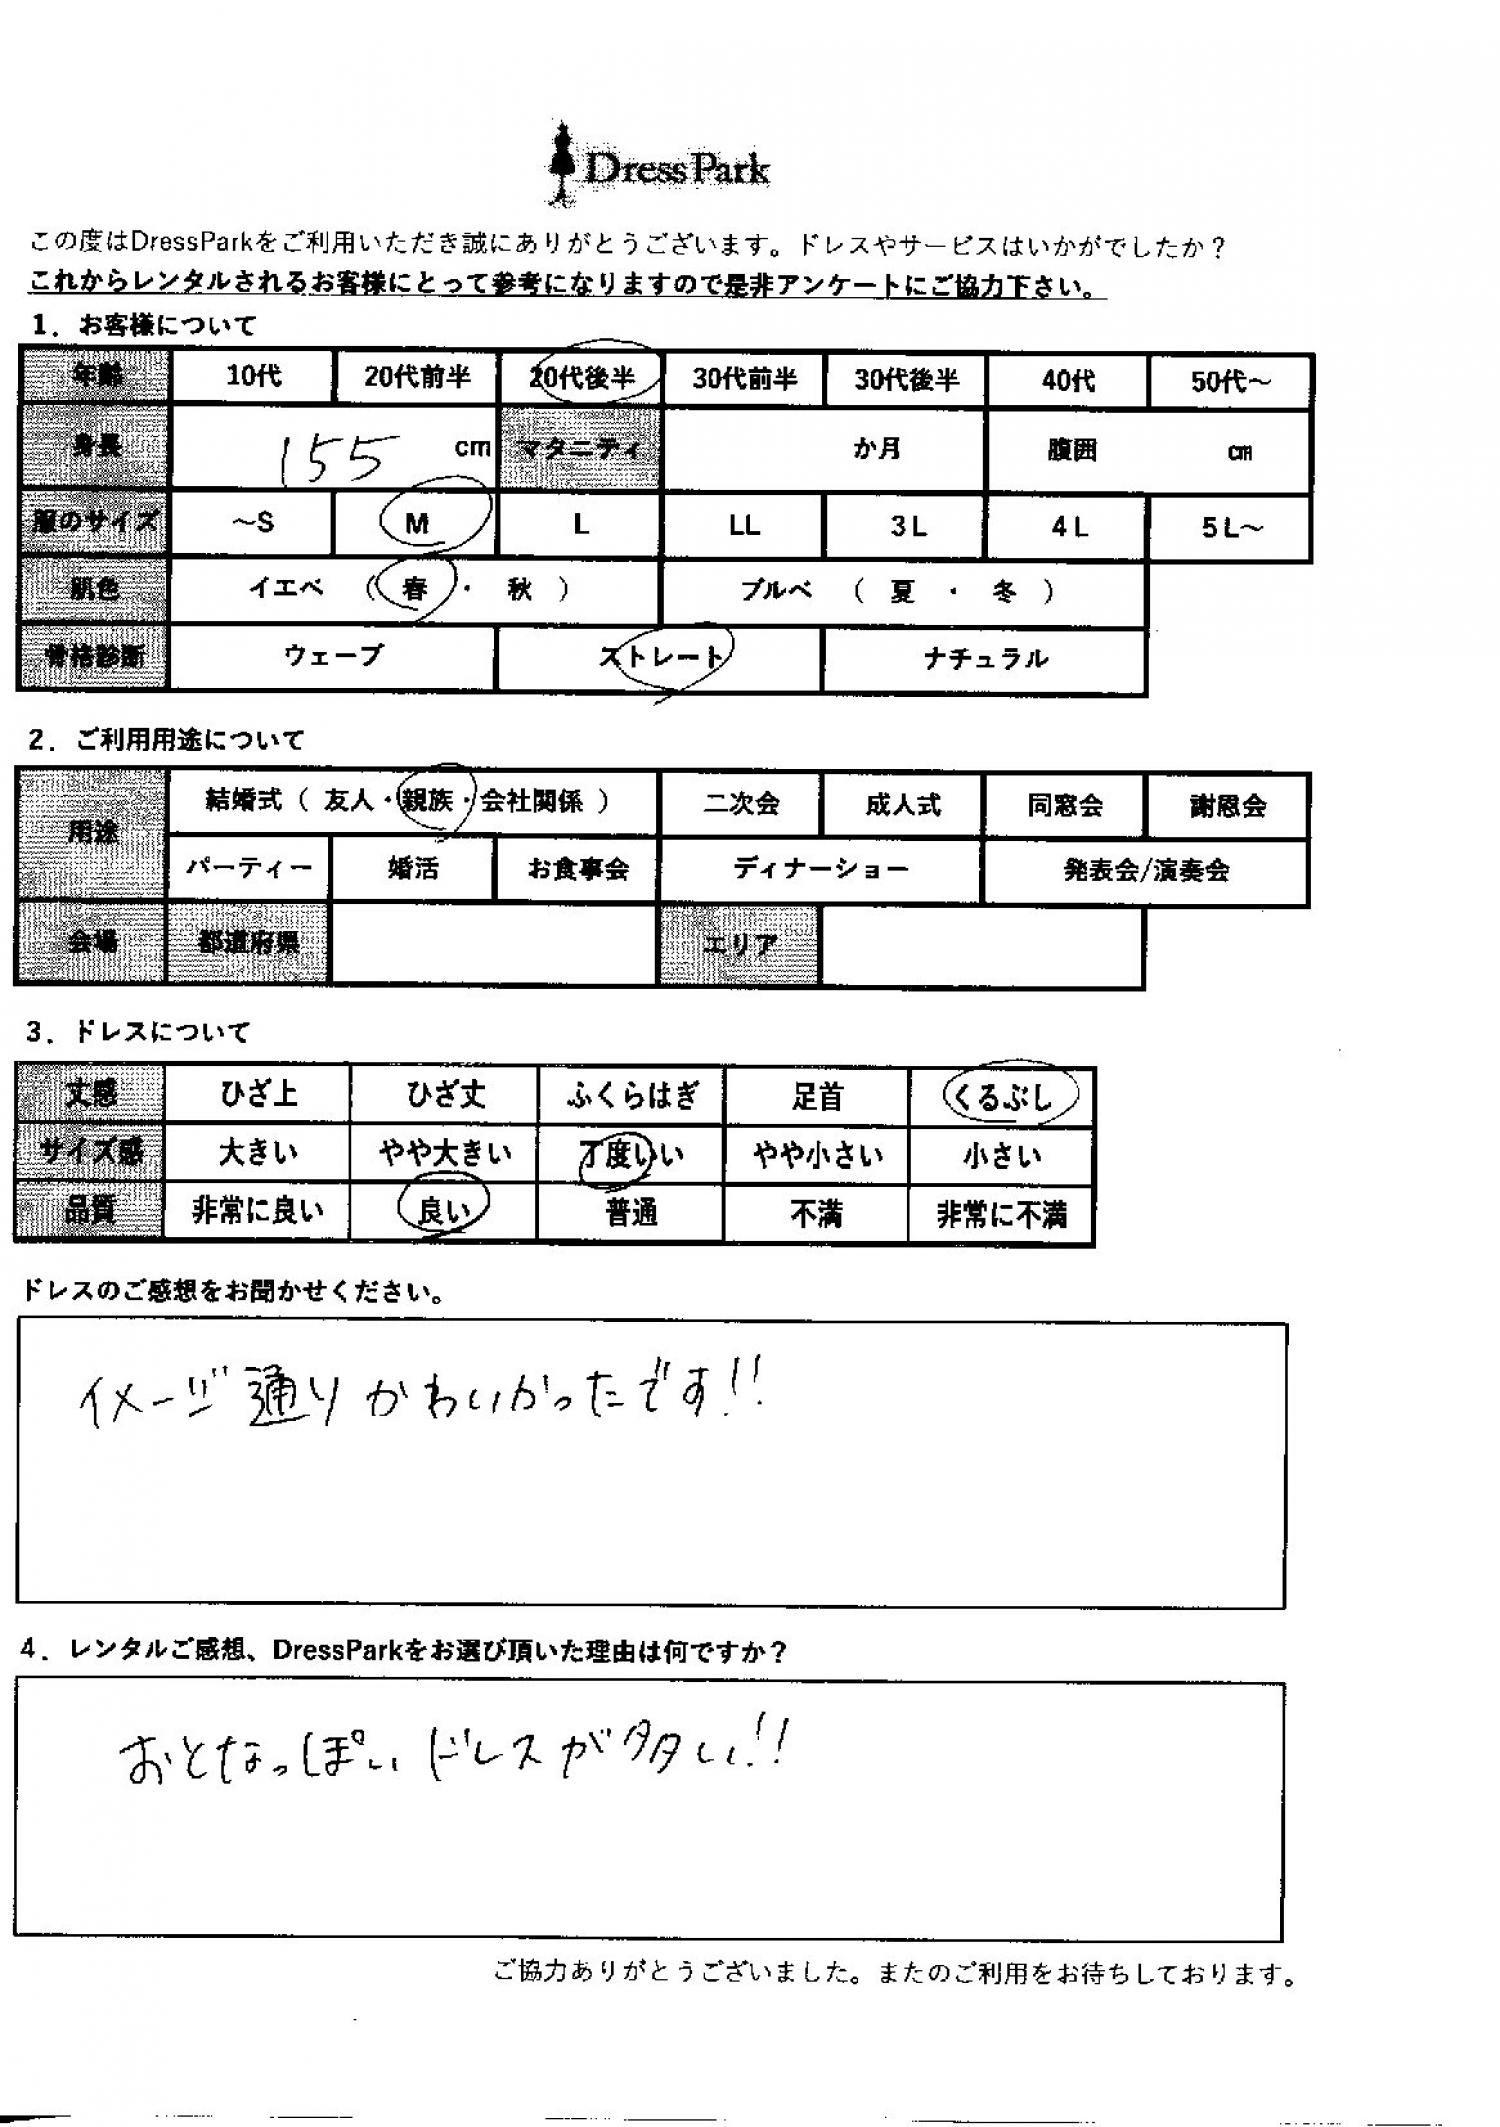 DressPark
この度はDressParkをご利用いただき誠にありがとうございます。ドレスやサービスはいかがでしたか？
これからレンタルされるお客様にとって参考になりますので是非アンケートにご協力下さい。
1．お客様について
年齢 10代 20代前半 20代後半 30代前半 30代後半 40代 50代～
身長 155 cm マタニティ か月 腹囲 cm
服のサイズ ～S M L LL 3L 4L 5L～
肌色 イエベ （ 春 ・ 秋 ） ブルベ （ 夏 ・ 冬 ）
骨格診断 ウェーブ ストレート ナチュラル
2．ご利用用途について
用途 結婚式（ 友人・親族・会社関係 ） 二次会 成人式 同窓会 謝恩会
パーティー 婚活 お食事会 ディナーショー 発表会/演奏会
会場 都道府県 エリア
3．ドレスについて
丈感 ひざ上 ひざ丈 ふくらはぎ 足首 くるぶし
サイズ感 大きい やや大きい 丁度いい やや小さい 小さい
品質 非常に良い 良い 普通 不満 非常に不満
ドレスのご感想をお聞かせください。
イメージ通りかわいかったです!!
4．レンタルご感想、DressParkをお選び頂いた理由は何ですか？
おとなっぽいドレスが多い!!
ご協力ありがとうございました。またのご利用をお待ちしております。